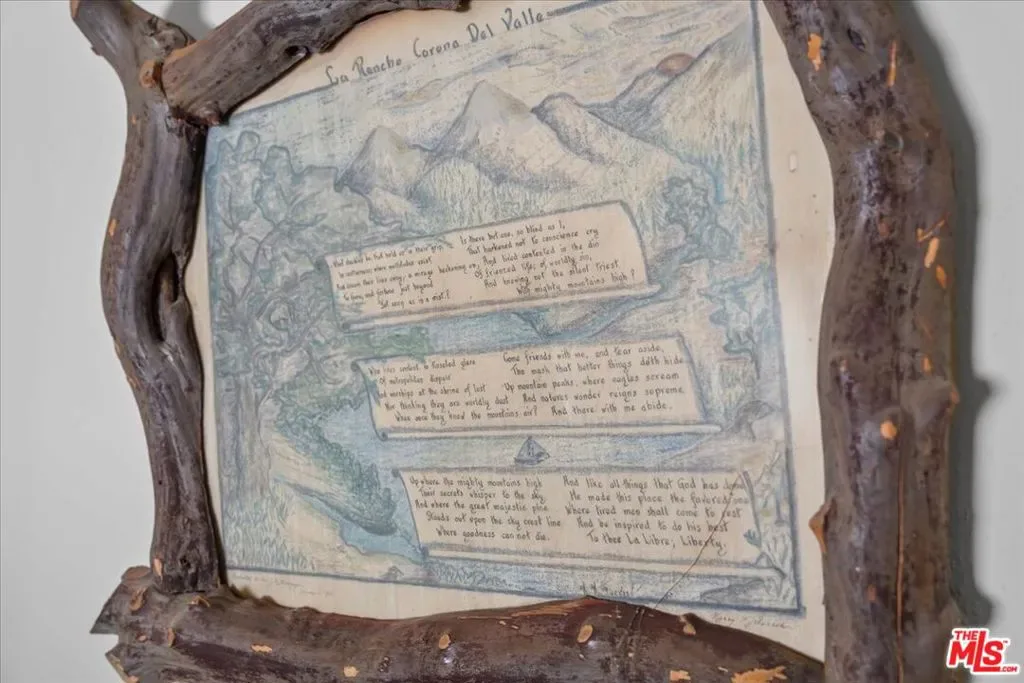 La Rancho Corona Del Valle
What should be that hold us in their grip
In nothingness where multitudes exist
And leave their lives away, a mirage beckoning on,
To fame, and fortune just beyond
Yet sery as is a mist?
Is there but one, so blind as I,
That harkened not to conscience cry
And lived contested in the din
Of frienzed life; of worldly sin,
And knowing not the silent tryst
With mighty mountains high?
Who lives content in faceted glare
Of metropolitan despair
And worships at the shrine of lust
Nor thinking they are worldly dust
When once they know the mountains air?
Come friends with me, and tear aside,
The mask that better things doth hide
Up mountain peaks, where eagles scream
And natures wonder reigns supreme
And there with me abide.
Up where the mighty mountains high
Their secrets whisper to the sky
And where the great majestic pine
Stands out upon the sky crest line
Where goodness can not die.
And like all things that God has done
He made this place the favored one
Where tired men shall come to rest
And be inspired to do his best
To thee La Libre; Liberty.
THE
MLS™
.COM